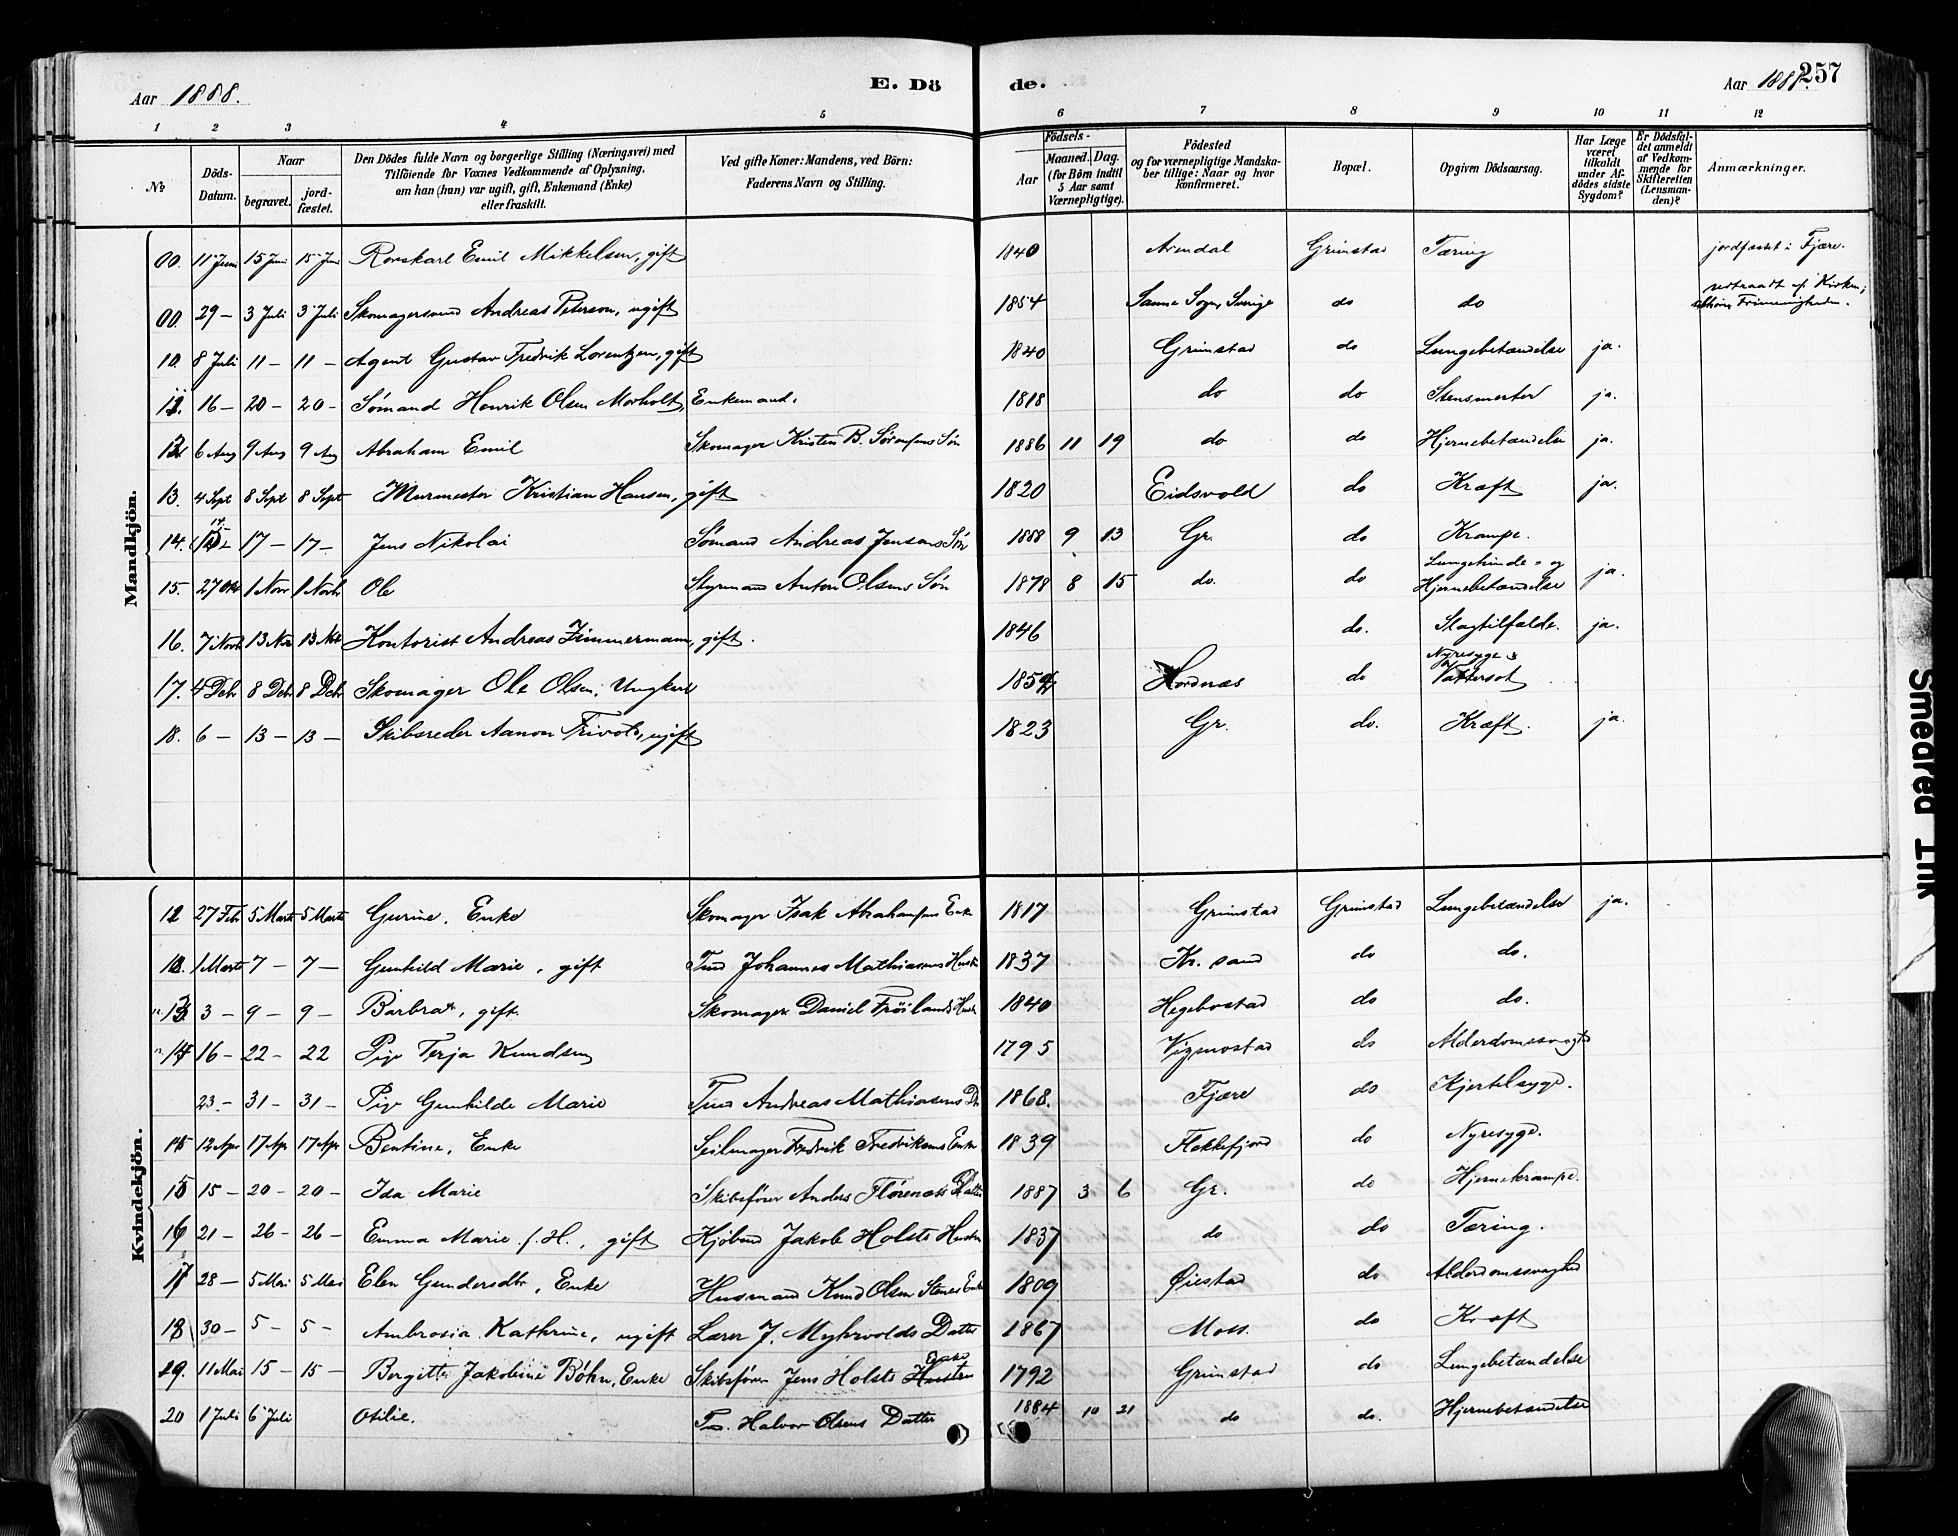 Aar 1888. E. Dö de. Aar 1888. 257
1 2 3 4 5 6 7 8 9 10 11 12
No Döds-Datum. Naar begravet. jordfæstet. Den Dödes fulde Navn og borgerlige Stilling (Næringsvei) med Tilföiende for Voxnes Vedkommende af Oplysning, om han (hun) var ugift, gift, Enkemand (Enke) eller fraskilt. Ved gifte Koner: Mandens, ved Börn: Faderens Navn og Stilling. Födsels- Aar Maaned. Dag. (for Börn indtil 5 Aar samt Værnepligtige). Födested og for værnepligtige Mandskaber tillige: Naar og hvor konfirmeret. Bopæl. Opgiven Dödsaarsag. Har Læge været tilkaldt under Afdödes sidste Sygdom? Er Dödsfaldet anmeldt af Vedkommende for Skifteretten (Lensmanden)? Anmærkninger.
Mandkjön.
00. 11 Juni 15 Juni 15 Juni Rorskarl Emil Mikkelsen, gift 1840 Arendal Grimstad Tæring jordfæstet i Fjære.
00. 29 - 3 Juli 3 Juli Skomagersvend Andreas Peterson, ugift 1854 Sanne Sogn, Sverige do do udtraadt af Kirken; Frimenigheden.
10. 8 Juli 11 - 11 - Agent Gustav Fredrik Lorentzen, gift 1840 Grimstad do Lungebetændelse ja.
11. 16 - 20 - 20 - Sømand Henrik Olsen Morholt, Enkemand. 1818 do do Stensmerter ja.
12 6 Aug 9 Aug 9 Aug Abraham Emil Skomager Kristen B. Sørensens Søn 1886 11 19 do do Hjernebetændelse ja.
13. 4 Sept 8 Sept 8 Sept Murmester Kristian Hansen, gift 1820 Eidsvold do Kræft ja.
14. 17 - 17 - Jens Nikolai Sømand Andreas Jensens Søn 1888 9 13 Gr. do Krampe.
15. 27 Okt 1 Novr 1 Novr Ole Styrmand Anton Olsens Søn 1878 8 15 do. do Lungehinde- og Hjernebetændelse ja.
16. 7 Novr 13 Nov 13 Nov Kontorist Andreas Zimmermann, gift. 1846 do. Slagtilfælde. ja.
17. 4 Decbr 8 Decbr 8 Decbr Skomager Ole Olsen, Ungkarl Hordnæs do Nyresyge & Vattersot
18. 6 - 13 - 13 - Skibsreder Aanon Frivold, ugift 1823 Gr. do. Kræft. ja.
Kvindekjön.
11 27 Feb 5 Marts 5 Marts Gurine, Enke Skomager Isak Abrahamsens Enke 1817 Grimstad Grimstad Lungebetændelse ja.
12. 1 Marts 7 - 7 - Gunhild Marie, gift Tmd Johannes Mathiasens Hustru 1837 Kr. sand do do.
13 3 - 9 - 9 - Barbra, gift. Skomager Daniel Frøilands Hustru 1840 Hegebostad do do.
14 16 - 22 - 22 Pige Terja Knudsen 1795 Vigmostad do Alderdomssvaghed
23 - 31 - 31 - Pige Gunhilde Marie Tmd Andreas Mathiasens Dtr 1868. Fjære do Kjertelsyge.
15 12 Apr 17 Apr 17 Apr Bentine, Enke Seilmager Fredrik Fredriksens Enke 1839 Flekkefjord do Nyresyge.
15 15 - 20 - 20 - Ida Marie Skibsfører Anders Flørenæs Datter 1887 3 6 Gr. do Hjernekrampe.
16 21 - 26 - 26 - Emma Marie f. H., gift Kjøbmd Jakob Holsts Hustru 1837 do do Tæring.
17 28 - 5 Mai 5 Mai Elen Gundersdtr, Enke Husmand Knud Olsen Stenes Enke 1809 Øiestad do Alderdomssvaghed
18 30 - 5 - 5 - Ambrosia Kathrine, ugift Lærer J. Myhrvolds Datter 1867 Moss. do Kræft
19. 11 Mai 15 - 15 - Bergitte Jakobine Bøhn, Enke Skibsfører Jens Holsts Hustru Enke 1792 Grimstad do Lungebetændelse
20 1 Juli 6 Juli Otilie. Tmd. Halvor Olsens Datter 1884 10 21 do do. Hjernebetændelse
Smeared Ink